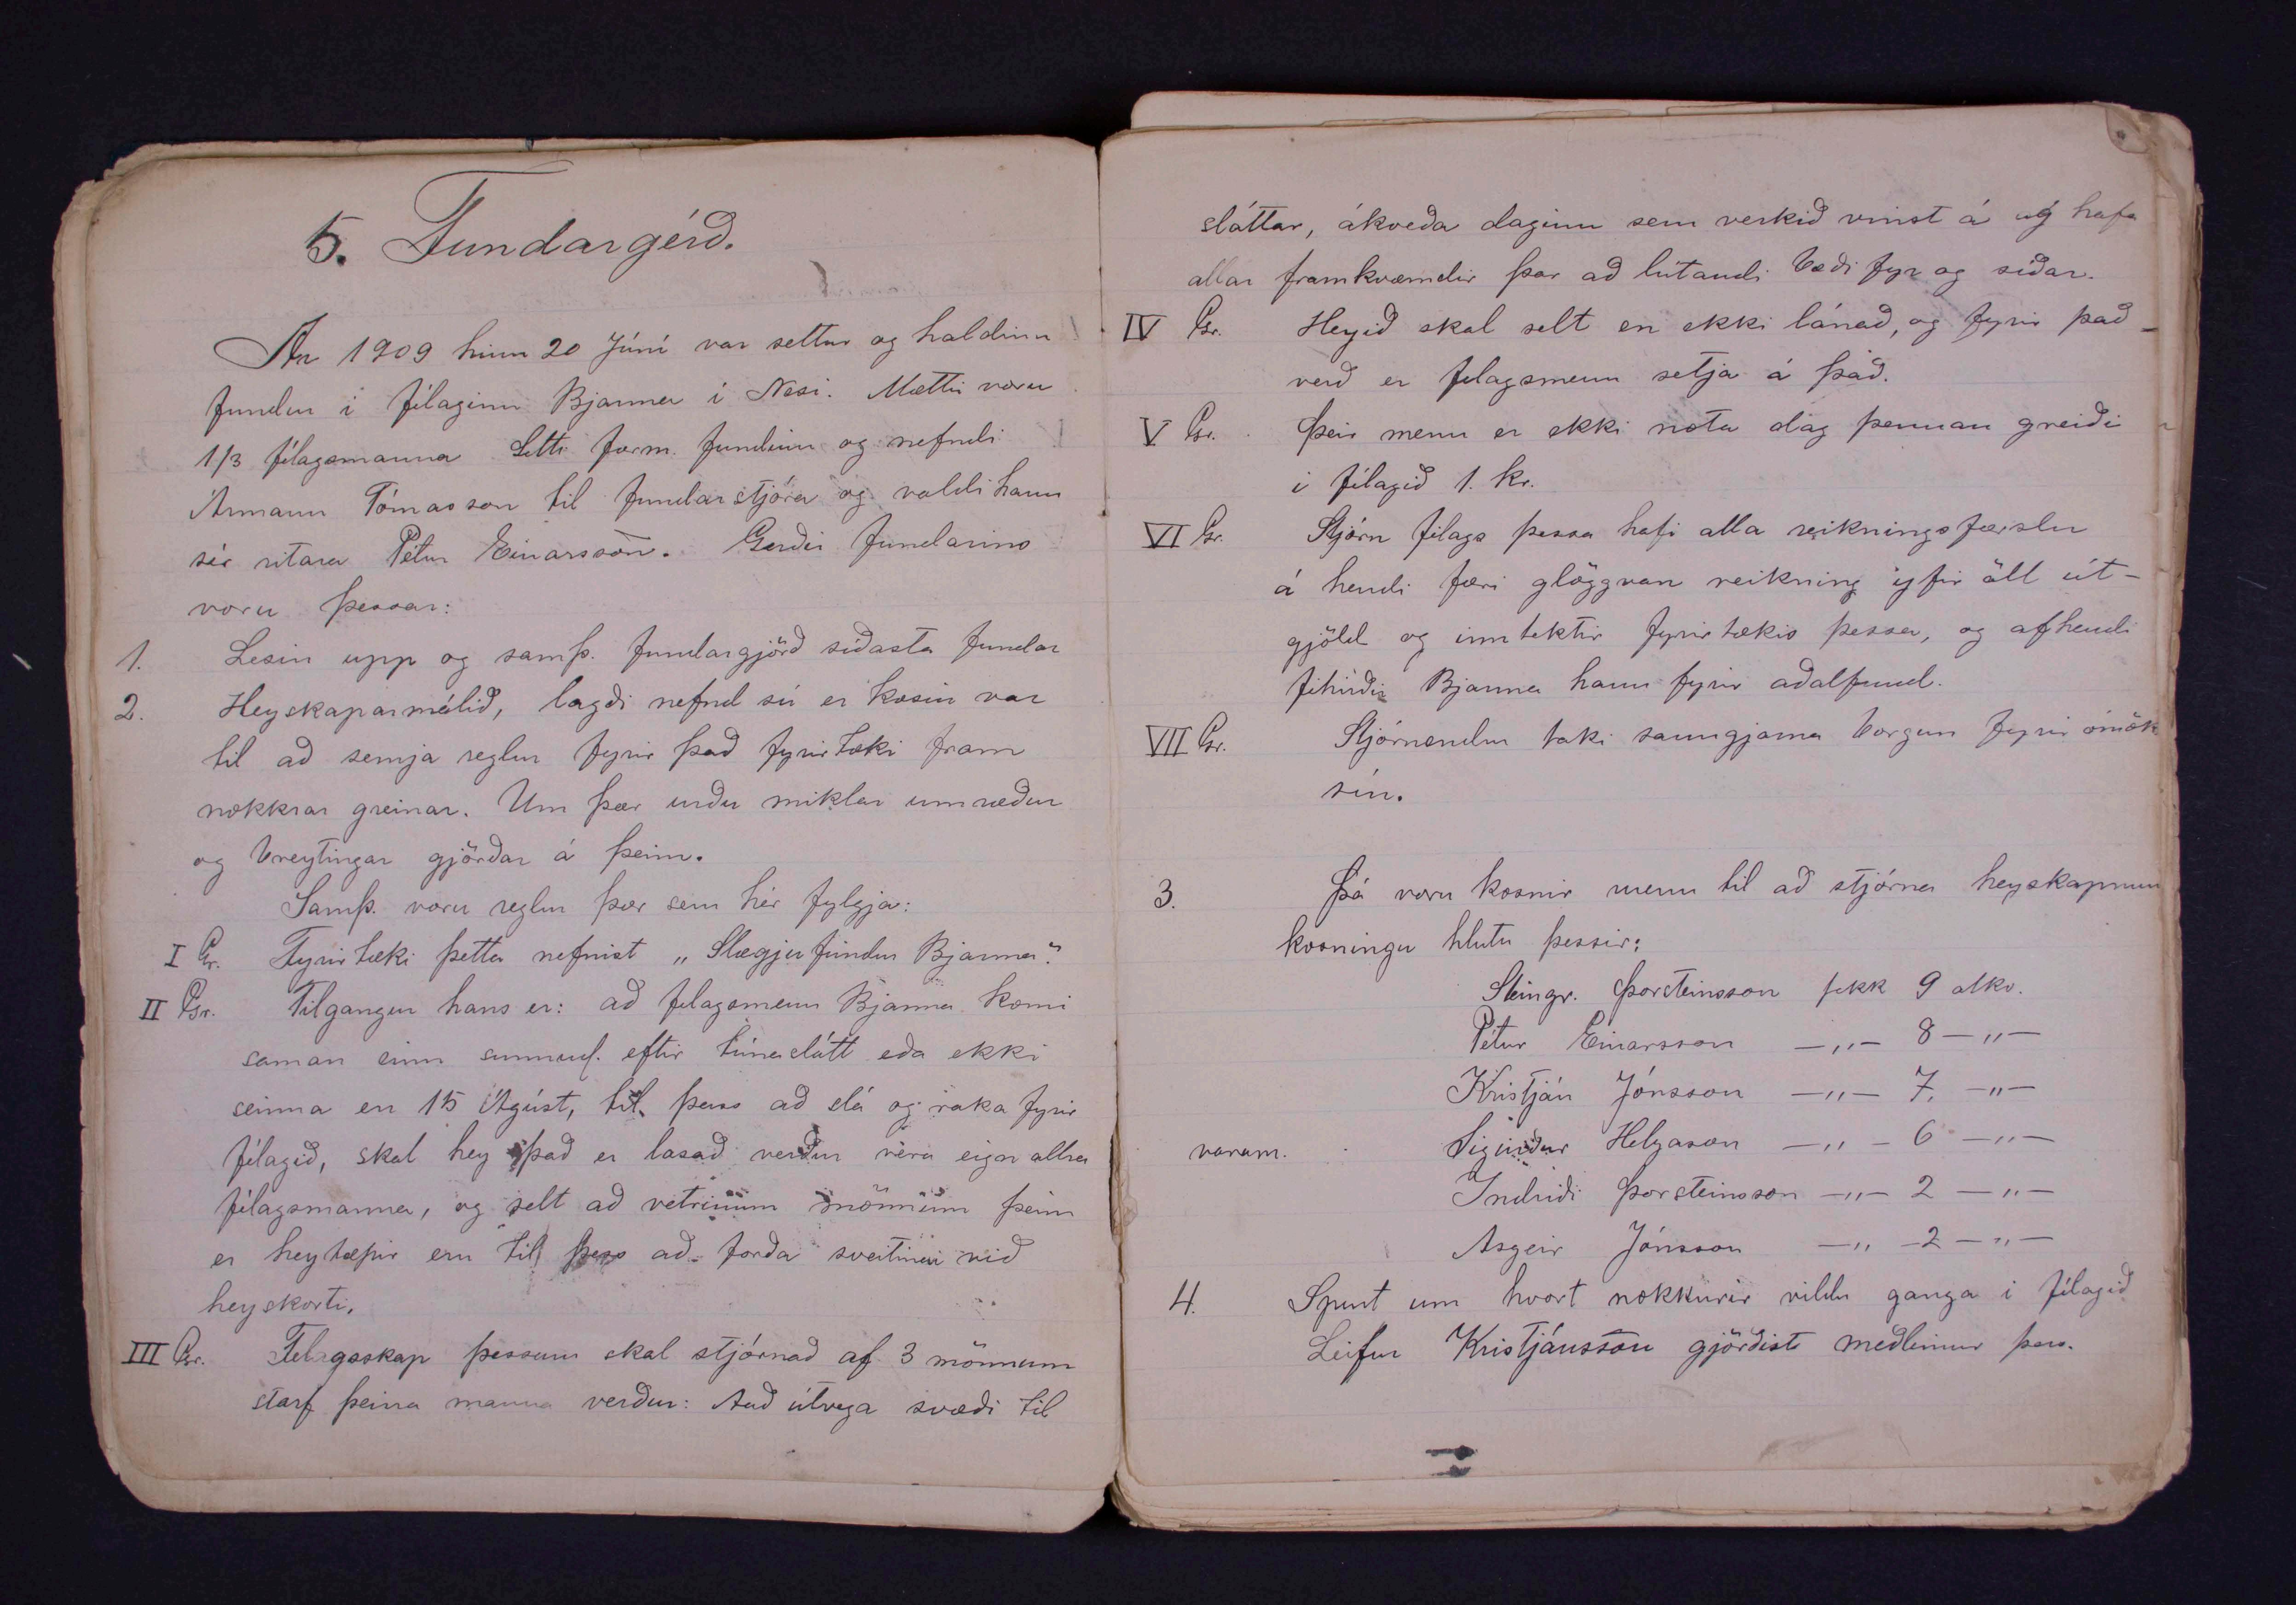 5. Fundargérð.
Ár 1909 hinn 20 Júní var settur og haldinn
fundur i félaginu Bjarma í Nesi. Mættir voru
1/3 félagsmanna Setti form. fundinn og nefndi
Ármann Tómasson til fundarstjóra og valdi hann
sér ritara Pétur Einarsson. Gerðir fundarins
voru þessar:
1. Lesin upp og samþ. fundargjörð síðasta fundar
2. Heyskaparmálið, lagði nefnd sú er kosin var
til að semja reglur fyrir það fyrirtæki fram
nokkrar greinar. Um þær urðu miklar umræður
og breytingar gjörðar á þeim.
Samþ. voru reglur þær sem hér fylgja:
I Gr. Fyrirtæki þetta nefnist „Slægjufundur Bjarma".
II Gr. Tilgangur hans er: að felagsmenn Bjarma komi
saman einn sunnud. eftir túnaslátt eða ekki
seinna en 15 Ágúst, til þess að slá og raka fyrir
félagið, skal hey það er losað verður vera eign allra
félagsmanna, og selt að vetrinum mönnum þeim
er heytæpir eru til þess að forða sveitinni við
heyskorti.
III Gr. Felagsskap þessum skal stjórnað af 3 mönnum
starf þeirra manna verður: Að útvega svæði til
sláttar, ákveða daginn sem verkið vinst á og hafa
allar framkvæmdir þar að lútandi bæði fyr og síðar.
IV Gr. Heyið skal selt en ekki lánað, og fyrir það-
verð er felagsmenn setja á það.
V Gr. Þeir menn er ekki nota dag þennan greiði
i félagið 1. kr.
VI Gr. Stjórn félags þessa hafi alla reikningsfærslu
á hendi færi glöggvan reikning yfir öll út-
gjöld og inntektir fyrirtækis þessa, og afhendi
féhirðir Bjarma hann fyrir aðalfund.
VII Gr. Stjórnendur taki sanngjarna borgun fyrir ómök
sín.
3. Þá voru kosnir menn til að stjórna heyskapnum
kosningu hlutu þessir:
Steingr. Þorsteinsson fekk 9 atkv.
Pétur Einarsson —„— 8 —„—
Kristján Jónsson —„— 7. —„—
varam. Sigurður Helgason —„— 6 —„—
Indriði Þorsteinsson —„— 2 —„—
Asgeir Jónsson —„— 2 —„—
4. Spurt um hvort nokkurir vildu ganga i félagið
Leifur Kristjánsson gjörðist meðlimur þess.